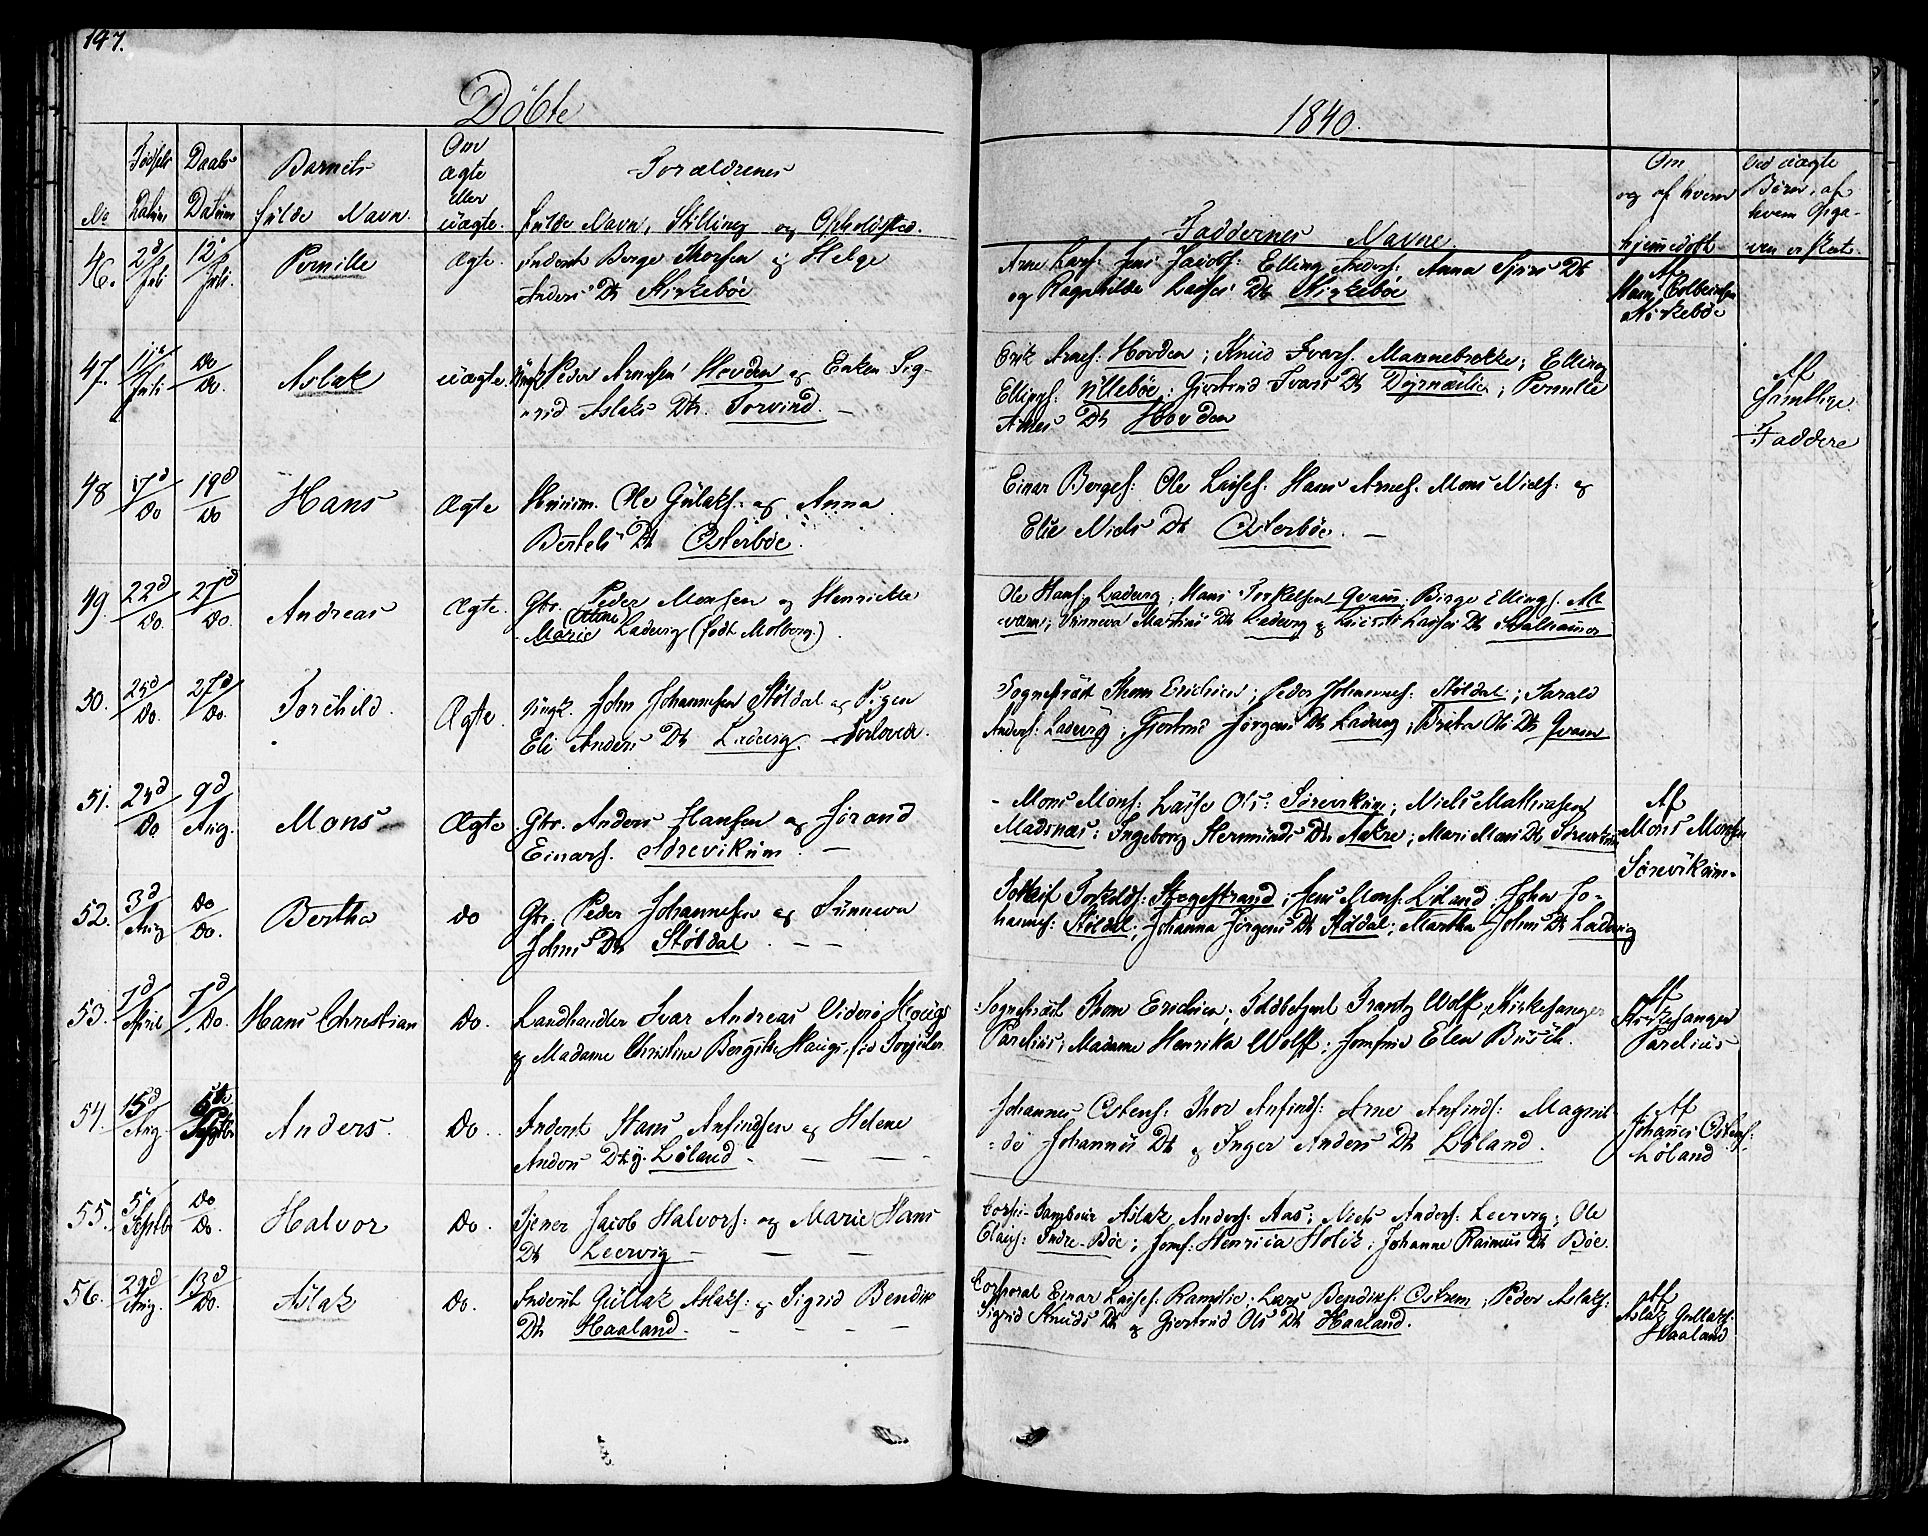 147.
Döbte
1840.
No
Födsels
Datum
Daabs
Datum
Barnets
fulde Navn.
Om
ægte
eller
uægte.
Forældrenes
fulde Navn, Stilling og Opholdsted.
Faddernes Navne.
Om
og af hvem
hjemedöbt
Ved uægte
Börn, af
hvem Opga-
ven er skeet.
46. 2d/Juli 12/Juli. Pernille Ægte. Inderst Berge Thorsen og Helge
Anders Dt Kirkeböe
Arne Lars: Jens Jacobs: Elling Anders: Anna Dt
og Ragnhilde Lasses Dt Kirkeböe
Af
Kirkeböe
47. 11/Juli Do/Do. Aslak uægte. Ungk Peder Arnesen Hovden og Enken Sig-
Aslaks Dtr. Torvind. -
Erik Arnes: Hovden; Knud Ivars. Mannebrekke; Elling
Ellings. Villeböe; Giertrud Ivars Dt Dyrnæslie; Pernille
Arnes Dt Hovden
Af
Samtlige
Faddere
48 17d/Do 19d/Do Hans Ægte Ole Gulaks: og Anna
Bertels Dt Österböe.
Einar Berges: Ole Lasses: Hans Arnes. Mons Niels: og
Elie Niels Dt Österböe. -
49. 22d/Do. 27d/Do. Andreas Ægte. Gbr. Peder Monsen og Henriette
Marie Ladevig (född Molberg).
Ole Hans: Ladevig; Hans Torkelsen Qvam. Birge Ellings.
Synneva Martins Dt Ladevig og Lasses Dt
50. 25d/Do. 27d/Do. Torchild. Ægte. Ungk. John Johannesen Stöldal og Pigen
Eli Anders Dt Ladevig. Forlovede.
Sognepræst Thom Erichsen; Peder Johannes: Stöldal; Harald
Anders: Ladevig; Gjertrud Jörgens Dt Ladevig; Brita Ols Dt Qvam
51. 24d/Do 9d/Aug. Mons Ægte Gbr. Anders Hansen og Jörand
Einars. Sörevikum. -
- Mons Mons: Lasse Ols: Sörevikum; Niels Mathiasen
Madsnæs: Ingeborg Hermunds Dtr Aakre; Mari Mons Dt Sörevikum
Af
Mons Monsen
Sörevikum.
52. 3d/Aug Do/Do. Bertha do Gbr. Peder Johannesen og Sünneva
Johns Dt Stöldal. - -
Torkilds: Stegestrand; Jens Mons: Liland; John Jo-
hannes: Stöldal; Johanna Jörgens Dt Stöldal; Martha Johns Dt Ladevig
53. 7d/April 7d/Do. Hans Christian Do. Landhandler Ivar Andreas Haugs
og Madame Christine Bergitte Haugs,
Sognepræst Thom Erichsen. Toldbetjent Frantz Wolff, Kirkesanger
Parelius; Madame Henrika Wolff; Jomfrue Elen Büsch.
Af
Kirkesanger
Parelius
54. 15d/Aug. Septbr Anders. Do. Inderst Hans Anfindsen og Helene
Anders Dt Löland. - -
Johannes Ostens: Thor Anfinds: Arne Anfinds: Magnil-
=de Johannes Dt og Inger Anders Dt Löland.
Af
Johanes Ostens:
Löland
55. 5/Septbr Do/Do. Halvor Do. Tjener Jacob Halvors: og Marie Hans
Dt Leervig - - -
Aslak Anders: Aas; Niels Anders: Leervig; Ole
Olaus: Indre-Böe; Jomf: Henrica Holck; Johanne Rasmus Dt Böe.
56. 29d/Aug. 13d/Do. Aslak Do. Inderst Gullak Aslaks: og Sigrid Bendix
Dt Haaland - - - -
Corporal Einar Lasses: Ramslie. Lars Bendix: Östrem; Peder Aslaks:
Sigrid Knuds Dt og Giertrud Ols Dt Haaland.
Af
Aslak Gullaks.
Haaland